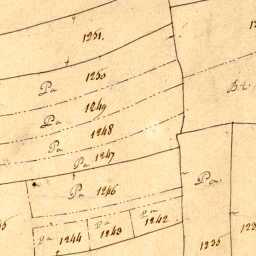 1251.
Pa 1250
Pa 1249
Pa 1248
Pa 1247
Pa 1246
Pa
Pa 1244
Pa 1243
Pa 1242
1235